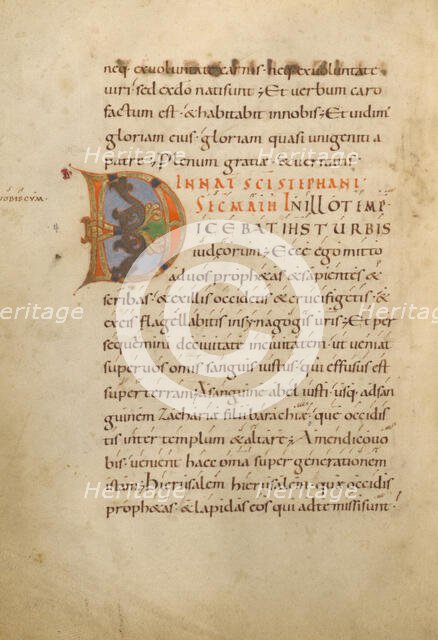 neq· exuoluntate carnis· neq· exuoluntate
uiri· sed exdõ natisunt; Et uerbum caro
factum est· & habitabit innobis; Et uidim'
gloriam eius· gloriam quasi unigeniti a
patre; Plenum gratiæ & ueritatis·
INNAT̃ SC̃I STEPHANI
SEC MATH̃ INILLOTEMP̃
DICEBAT IH̃S TURBIS
OBISCVM·
iudęorum; Ecce ego mitto
aduos proph&as & sapientes &
scribas· & exillis occid&is & crucifig&is· &
exeis flagellabitis insynagogis ur̃is; Et per
sequemini deciuitate inciuitatem· ut ueniat
superuos om̃is sanguis iustus· qui effusus est
superterram; Asanguine abel iusti· usq· adsan
guinem Zachariæ filii barachiæ· quẽ occidis
tis inter templum & altare; Amendicouo
bis· uenient haec om̃ia super generationem
istam; Hierusalem hierusalem· quæ occidis
proph&as· & lapidas eos qui adte missisunt·
Heritage
Heritage
Heritage
Heritage
Heritage
Heritage
Heritage
Heritage